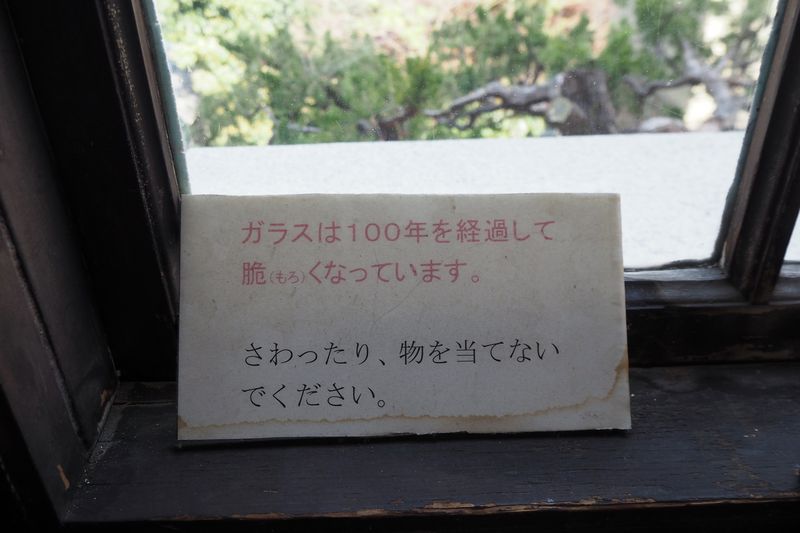 ガラスは１００年を経過して
脆(もろ)くなっています。
さわったり、物を当てない
でください。